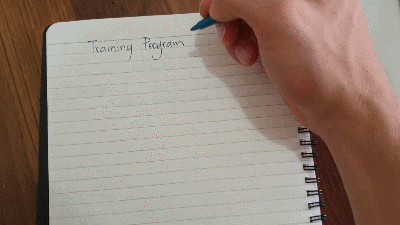 Training Program